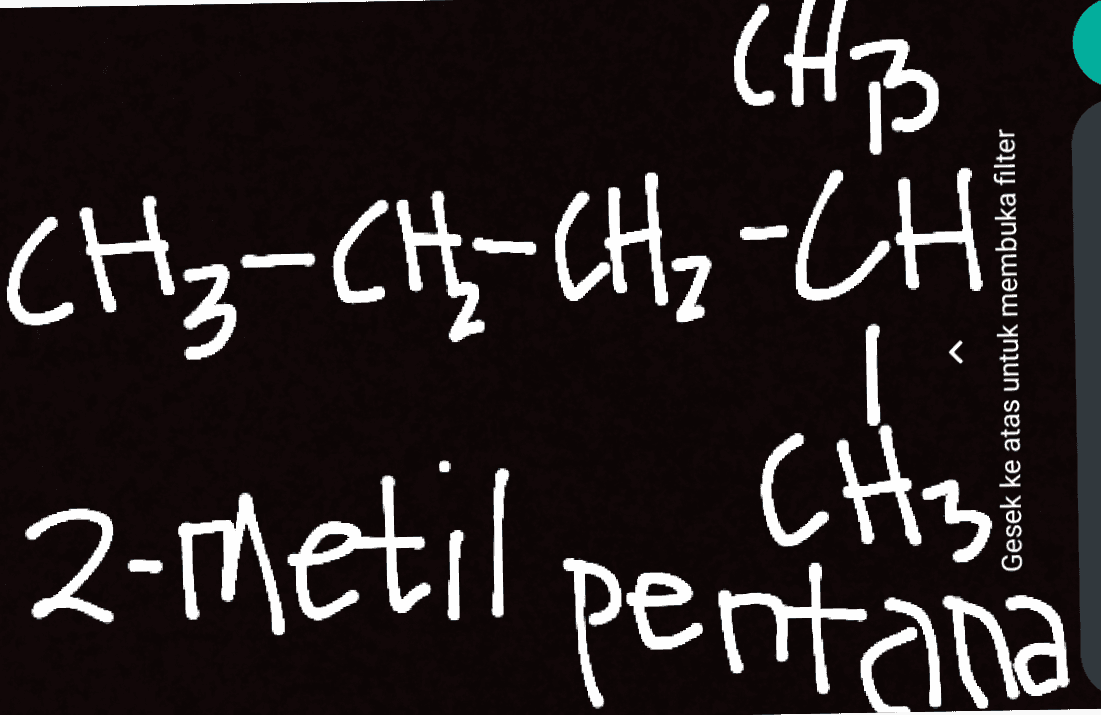 CH3
CH3-CH2-CH2-CH
CH3
2-Metil pentana
Gesek ke atas untuk membuka filter